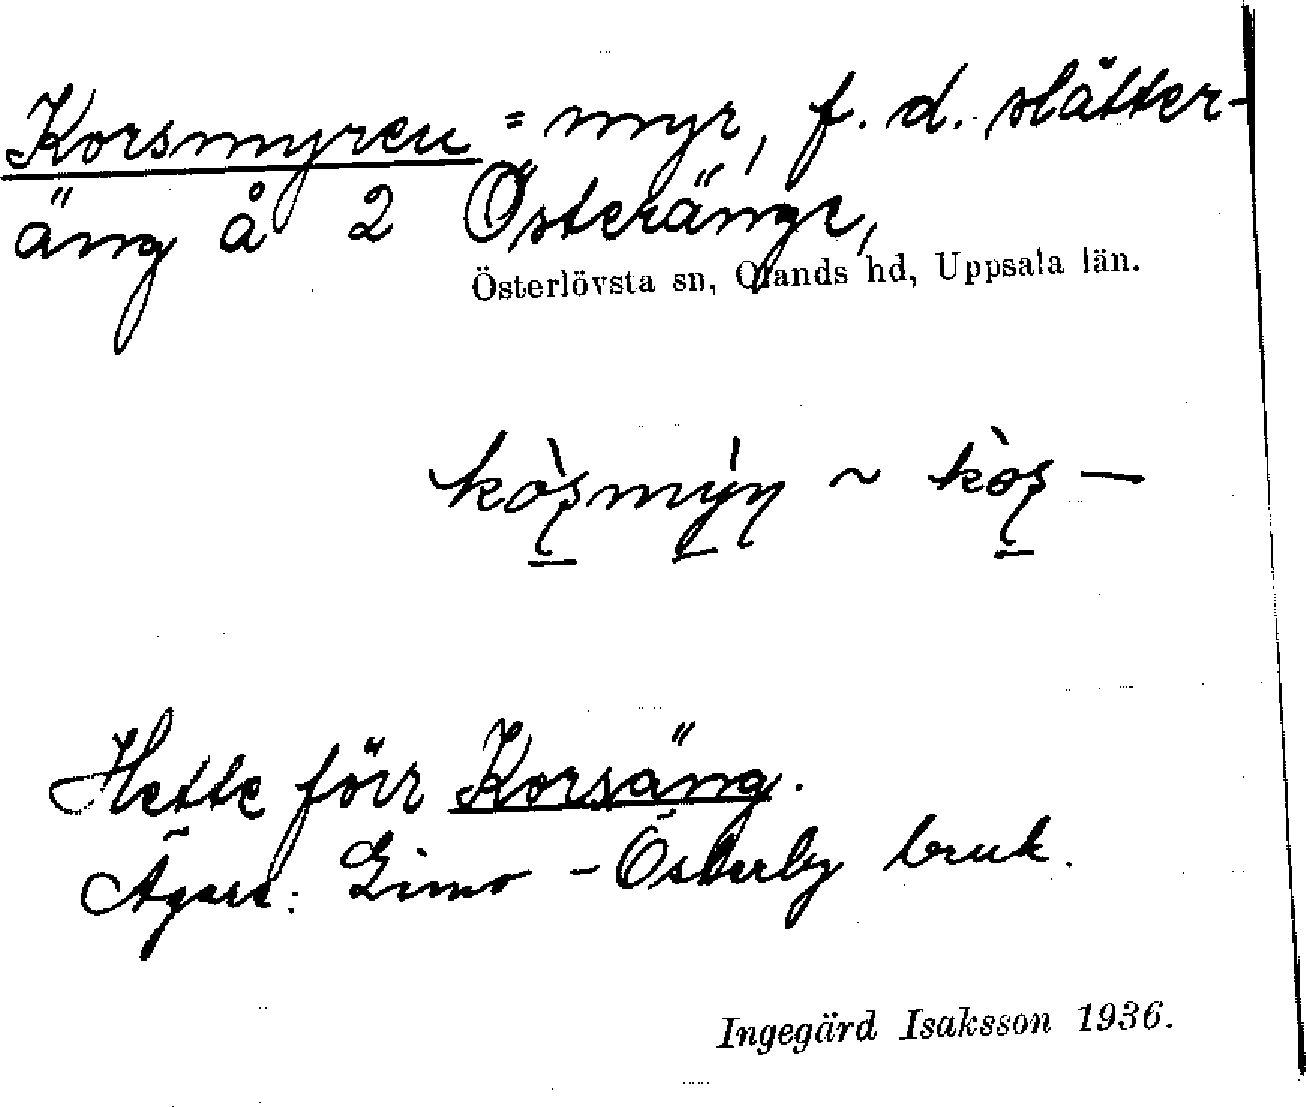 Korsmyren = myr, f. d. slåtter-
äng å 2 Österänge,
Österlövsta sn, Olands hd, Uppsala län.
kòʂmýɳ ~ kòʂ —
Hette förr Korsäng.
Ägare: Gimo - Österby bruk.
Ingegärd Isaksson 1936.